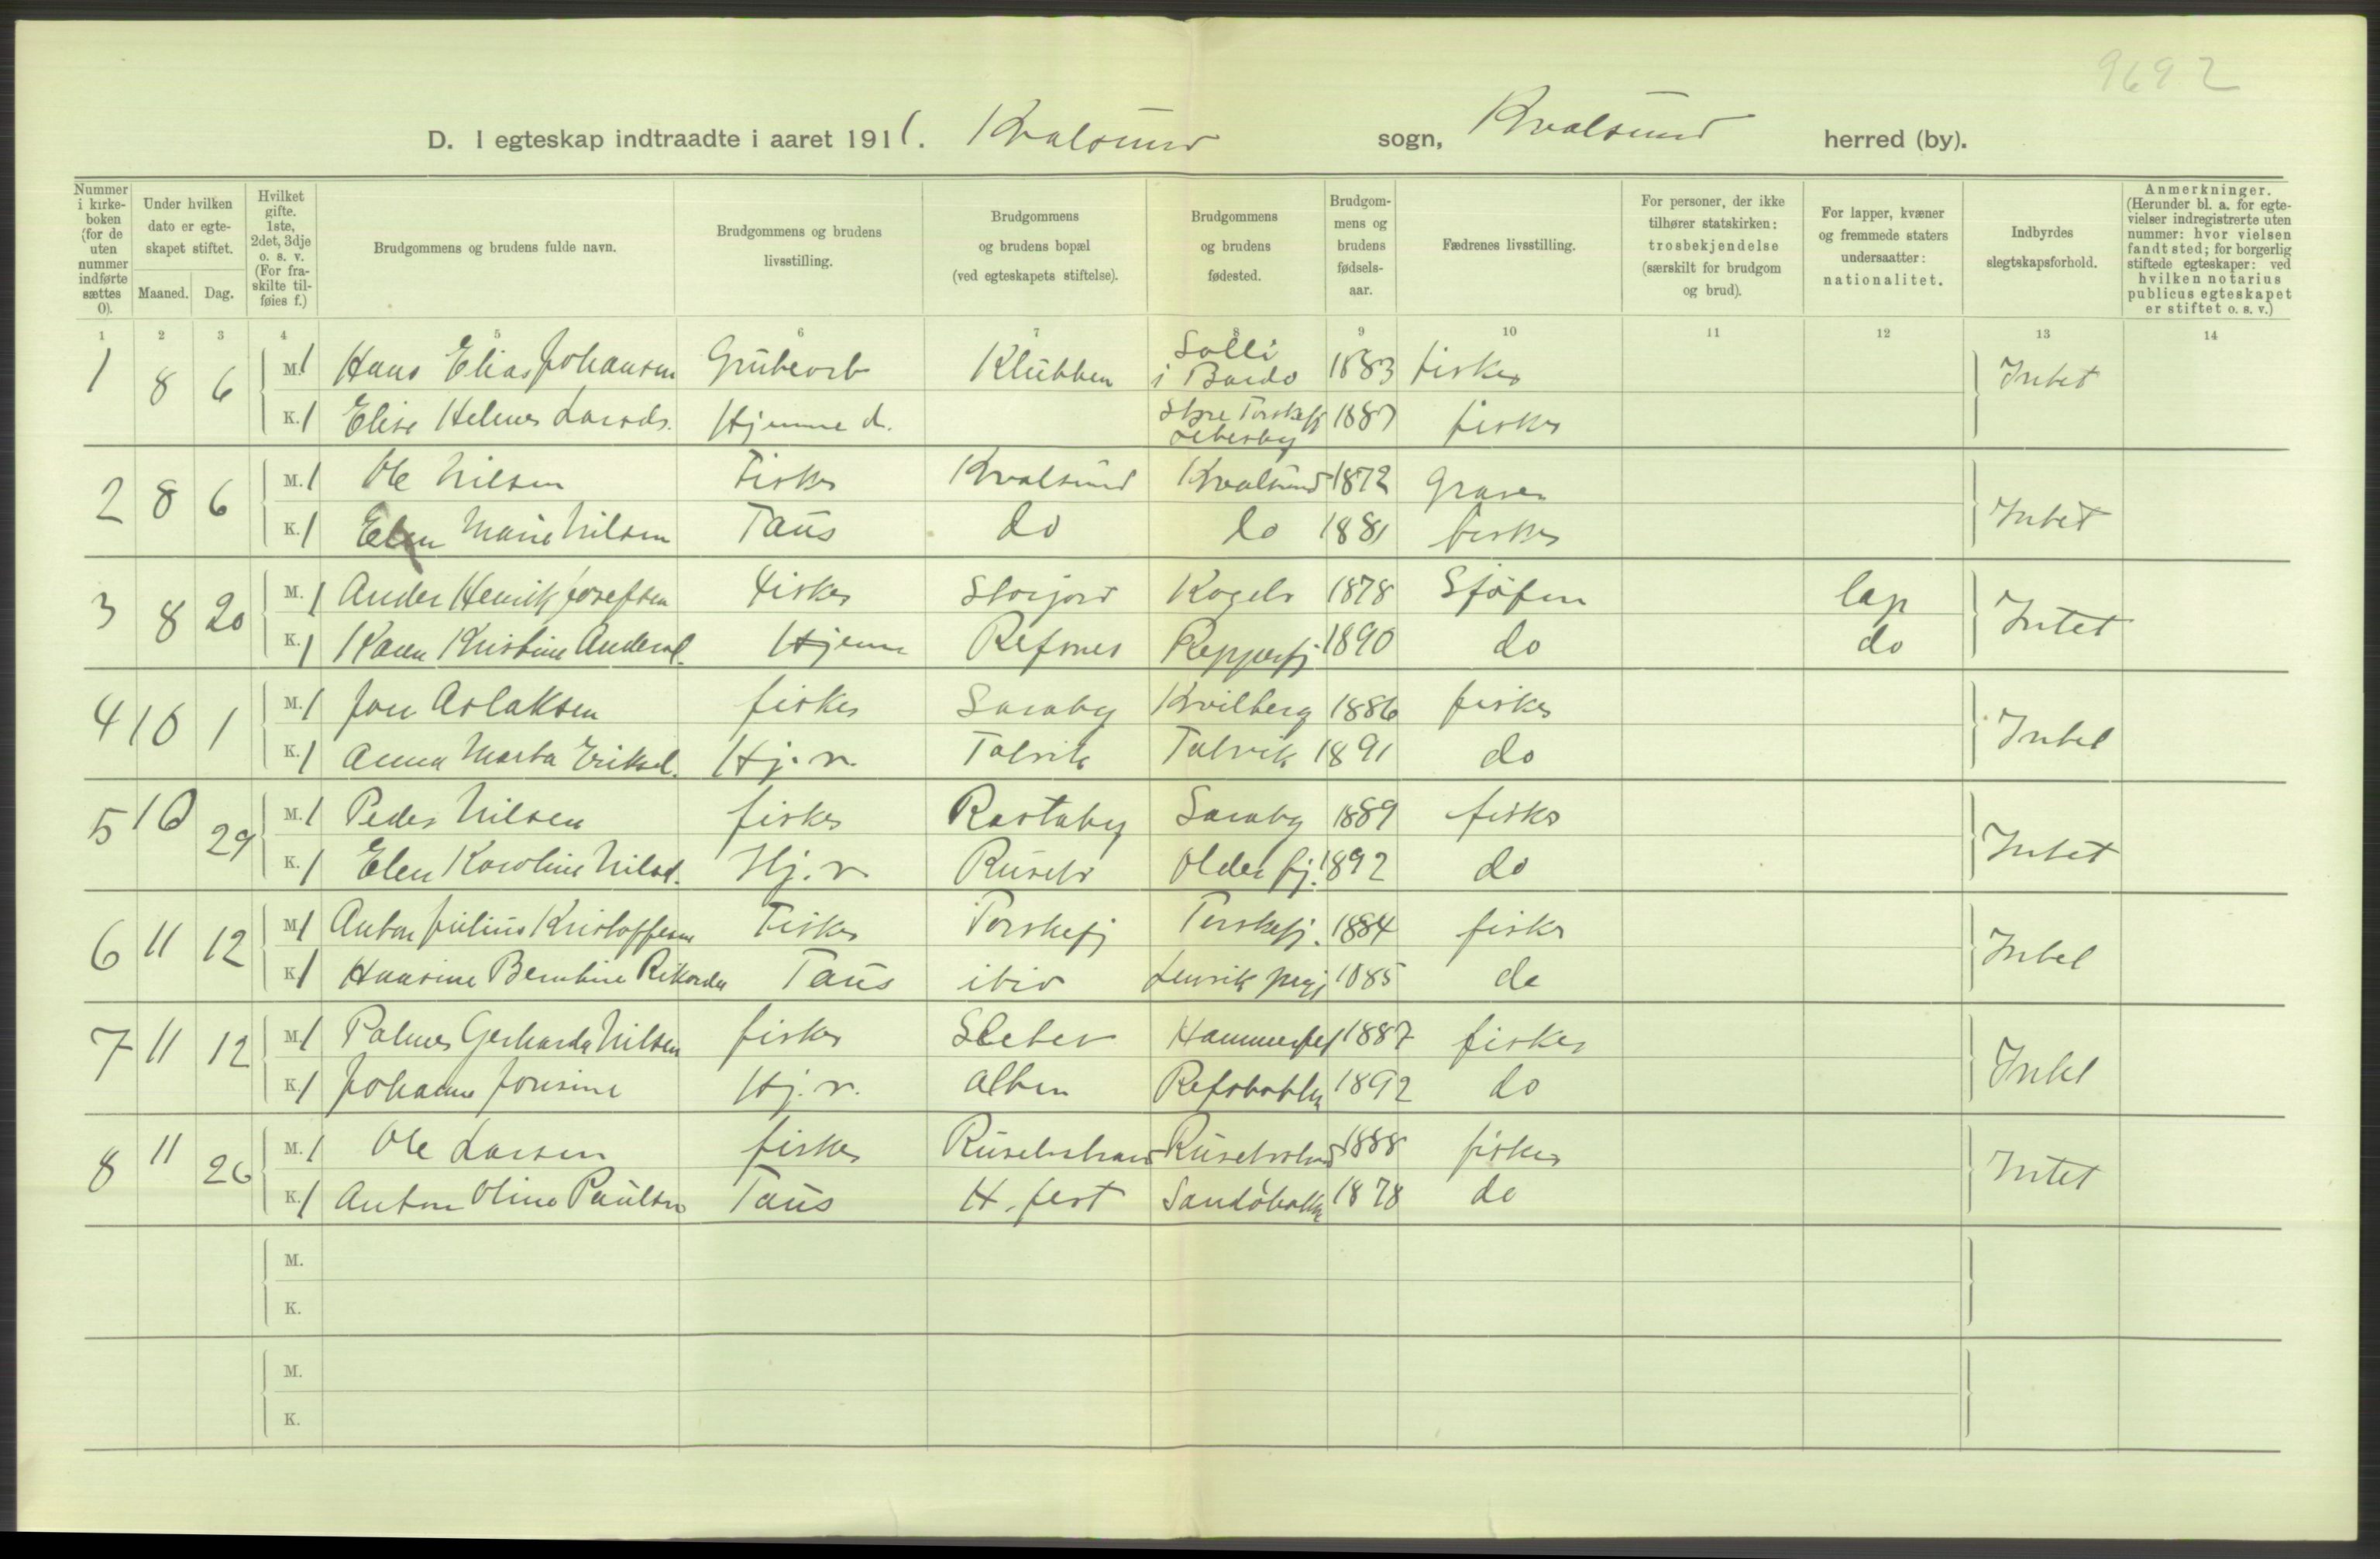 9692
D. I egteskap indtraadte i aaret 1911. Kvalsund sogn, Kvalsund herred (by).
Nummer i kirke-boken (for de uten nummer indførte sættes 0).
Under hvilken dato er egte-skapet stiftet.
Maaned. Dag.
Hvilket gifte. 1ste, 2det, 3dje o. s. v. (For fra-skilte til-føies f.)
Brudgommens og brudens fulde navn.
Brudgommens og brudens livsstilling.
Brudgommens og brudens bopæl (ved egteskapets stiftelse).
Brudgommens og brudens fødested.
Brudgom-mens og brudens fødsels-aar.
Fædrenes livsstilling.
For personer, der ikke tilhører statskirken: trosbekjendelse (særskilt for brudgom og brud).
For lapper, kvæner og fremmede staters undersaatter: nationalitet.
Indbyrdes slegtskapsforhold.
Anmerkninger. (Herunder bl. a. for egte-vielser indregistrerte uten nummer: hvor vielsen fandt sted; for borgerlig stiftede egteskaper: ved hvilken notarius publicus egteskapet er stiftet o. s. v.)
1 2 3 4 5 6 7 8 9 10 11 12 13 14
1 8 6 M. 1 Hans Elias Johansen Grubearb Klubben Solli i 1883 fisker Intet
K. 1 Elise Helmer Larsds. Hjemme d. Torskefj Lebesby 1887 fisker
2 8 6 M. 1 Ole Nilsen Fisker Kvalsund Kvalsund 1872 Graver Intet
K. 1 Elen Marie Nilsen Taus do do 1881 fisker
3 8 20 M. 1 Anders Henrik Josefsen Fisker Storjord 1878 Sjøfin lap Intet
K. 1 Karen Kristine Andersd. Hjem Refsnes Repparfj 1890 do do
4 10 1 M. 1 Jon Aslaksen fisker Saraby Kvilberg 1886 fisker Intet
K. 1 Anna Marta Eriksd. Hj. v. Talvik Talvik 1891 do
5 10 29 M. 1 Peder Nilsen fisker Rastaby Saraby 1889 fisker Intet
K. 1 Elen Karoline Nilsd. Hj. v. Olderfj. 1892 do
6 11 12 M. 1 Anton Julius Kristoffersen Fisker Torskefj Torskefj. 1884 fisker Intet
K. 1 Haarine Bernthine Rikards Taus ibid 1885 do
7 11 12 M. 1 Palmer Gerhards Nilsen fisker Hammerfest 1887 fisker Intet
K. 1 Johanne Jonsine Hj. v. 1892 do
8 11 26 M. 1 Ole Larsen fisker 1888 fisker Intet
K. 1 Anton Oline Paulsen Taus H. fest 1878 do
M.
K.
M.
K.